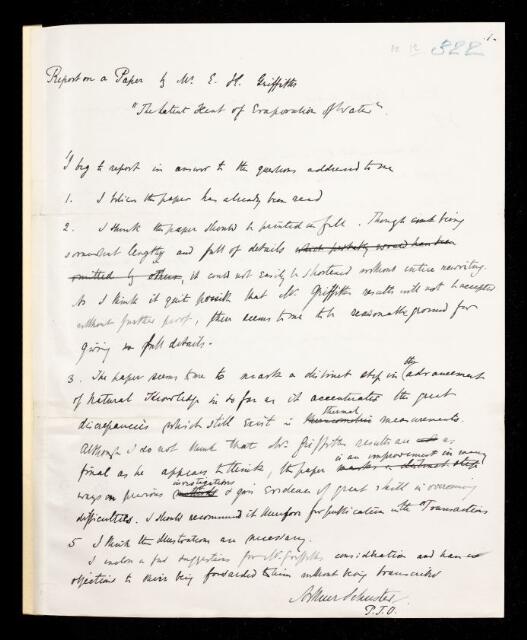 322
Report on a Paper by Mr. E. H. Griffiths
"The Latent Heat of Evaporation of Water".
I beg to report in answer to the questions addressed to me
1. I believe the paper has already been read
2. I think the paper should be printed in full. Though being
somewhat lengthy and full of details which probably would have been
omitted by others, it could not easily be shortened without entire rewriting.
As I think it quite possible that Mr. Griffiths results will not be accepted
without further proof, there seems to me to be reasonable ground for
giving in full details.
3. The paper seems to me to mark a distinct step in the advancement
of Natural Knowledge in so far as it accentuates the great
discrepancies which still exist in thermal measurements.
Although I do not think that Mr. Griffiths results are as
final as he appears to think, the paper is an improvement in many
ways on previous investigations & gives evidence of great skill in overcoming
difficulties. I should recommend it therefore for publication in the Transactions
5 I think the illustrations are necessary.
I enclose a few suggestions for Mr. Griffiths consideration and have no
objections to their being forwarded to him without being transcribed
Arthur Schuster
P.T.O.